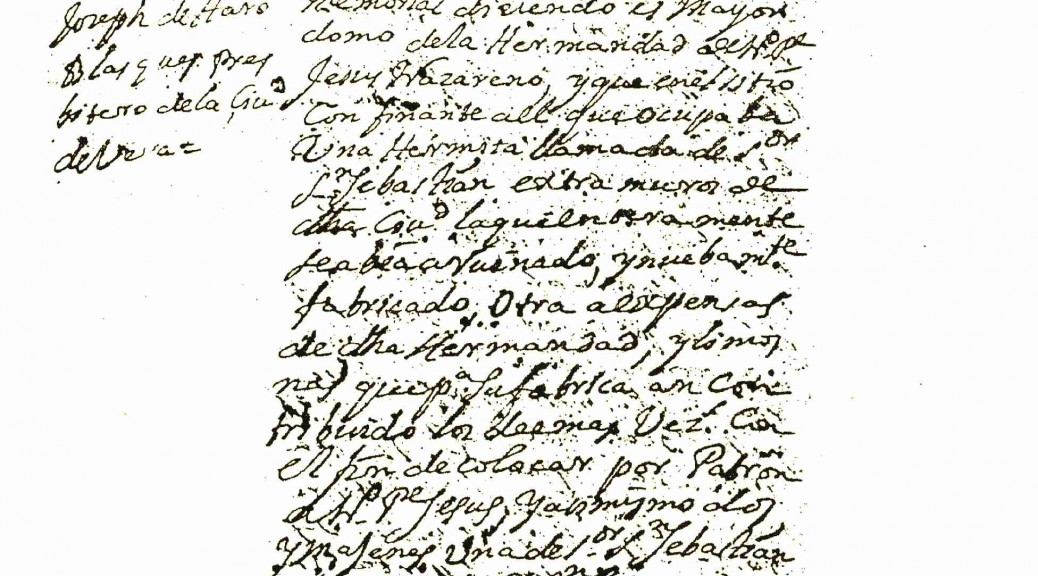 Joseph de Haro
Blasques pres
bitero de la Ciud
de Vera =
Memorial disiendo es Mayor
domo dela Hermandad de Nº Pe
Jesus Nazareno, y que enel sitio
Confinante all que ocupaba
Una Hermita llamada de Sor
Sn Sebastian extra muros de
dha Ciud laqueenteramente
seabia arruinado, ynuebamte
fabricado Otra a expensas
de dha Hermandad, y limos
nas que pa su fabrica an Con
tribuido los demas Vezs. Con
el fin de colocar por Patron
a Nº Pe Jesus, y asimismo dos
ymajenes Una de Sor Sn Sebastian